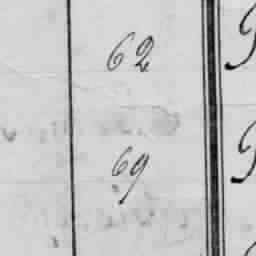 62
69